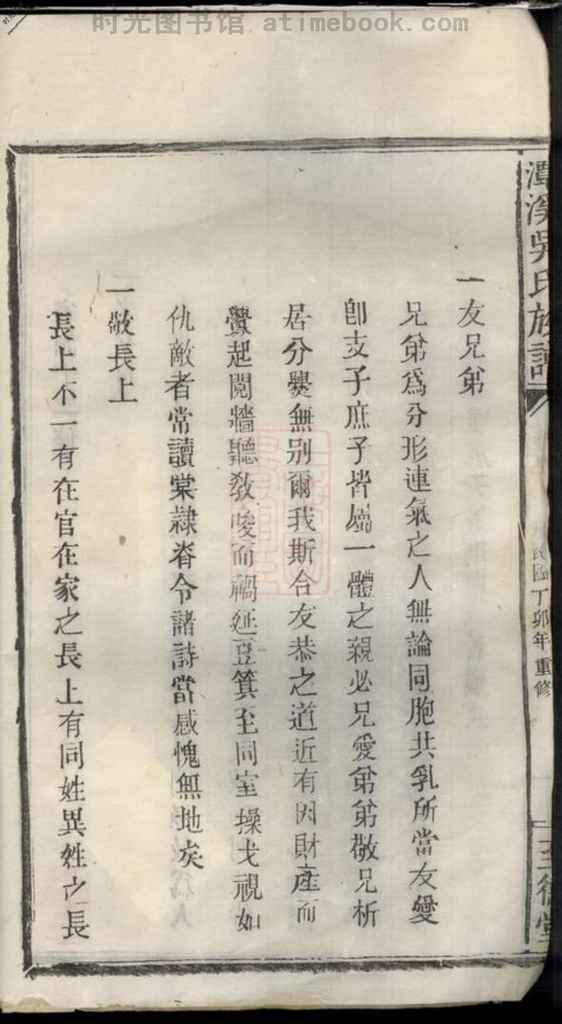 时光图书馆 atimebook.com
潭溪吳氏族譜
民國丁卯年重修
一友兄弟
兄弟爲分形連氣之人無論同胞共乳所當友愛
卽支子庶子皆屬一體之親必兄愛弟弟敬兄析
居分爨無別爾我斯合友恭之道近有因財產而
釁起鬩牆聽敎唆而禍延荳箕至同室操戈視如
仇敵者常讀棠隸脊令諸詩當感愧無地矣
一敬長上
長上不一有在官在家之長上有同姓異姓之長